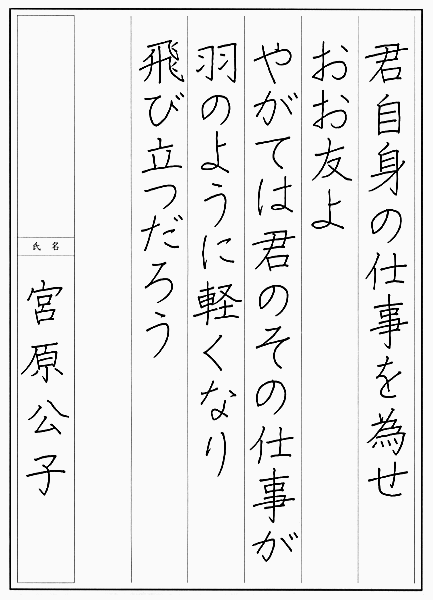 君自身の仕事を為せ
おお友よ
やがては君のその仕事が
羽のように軽くなり
飛び立つだろう
氏名
宮原公子